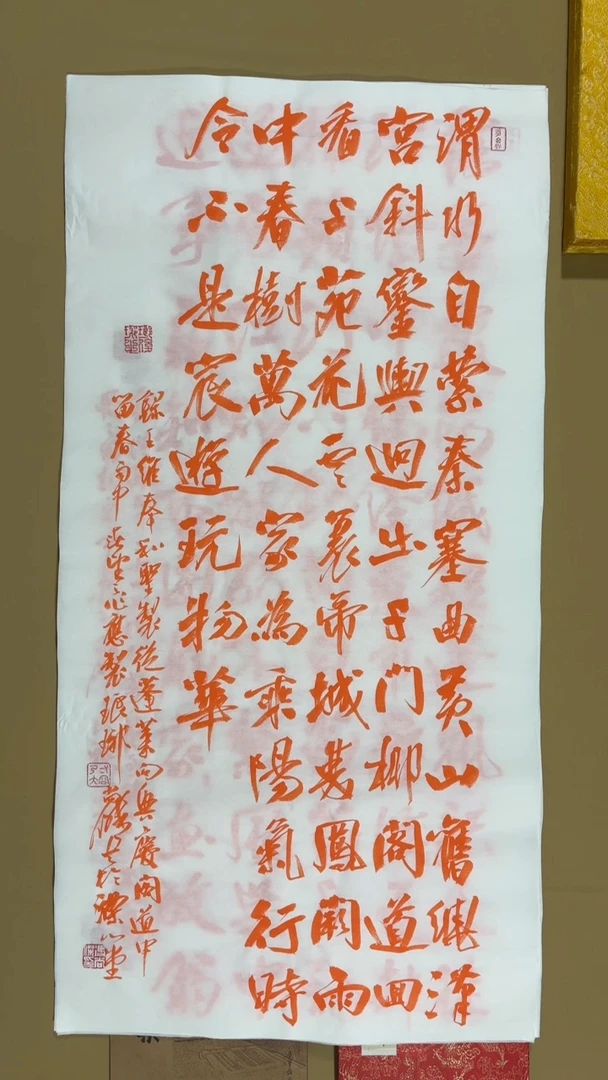 渭水自縈秦塞曲黃山舊繞漢
宮斜鑾輿迥出千門柳閣道回
看上苑花云裏帝城雙鳳闕雨
中春樹萬人家為乘陽氣行時
令不是宸遊玩物華
錄王維奉和聖製從蓬萊向興慶閣道中
留春雨中春望之作應製琅琊於心堂